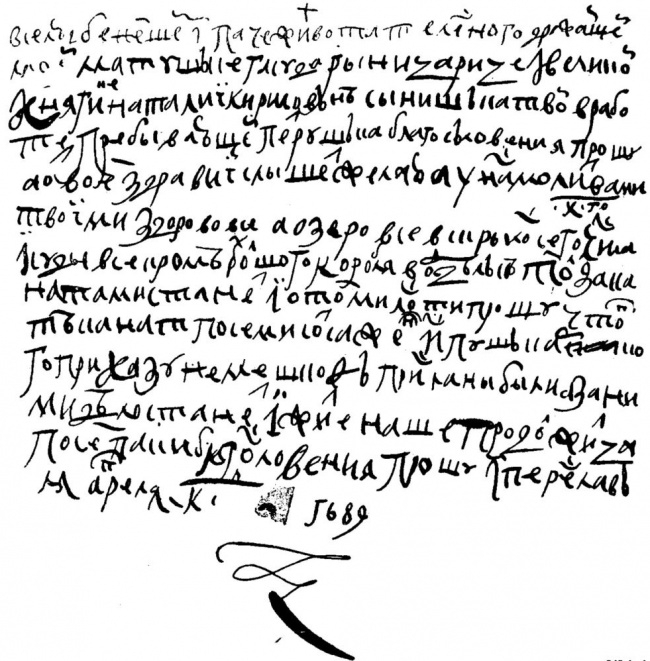 Вселюбезнейшей i паче живота телесного дражайшей
моей матушъке гасударыни царице i великой
кнегине наталиi кириловънѣ сынишъка твой в рабо
те пребывающей петрушъка благословения прошу
а о твоем здравиi слышеть желаю а у нас молитвами
твоiми здорово все а озеро все вскрылось сего 20 числа
i суды все кромѣ большого корабля в отдѣлкѣ токъмо за кана
натами станет i о том милости прошу чтоп
тѣ канаты по семисот сажен ис пушъкарско
го приказу не мешкоф присланы были а за ни
ми дѣло станет i житие наше продолжитца
по сем паки благословения прошу iс переславля
апреля 20
1689